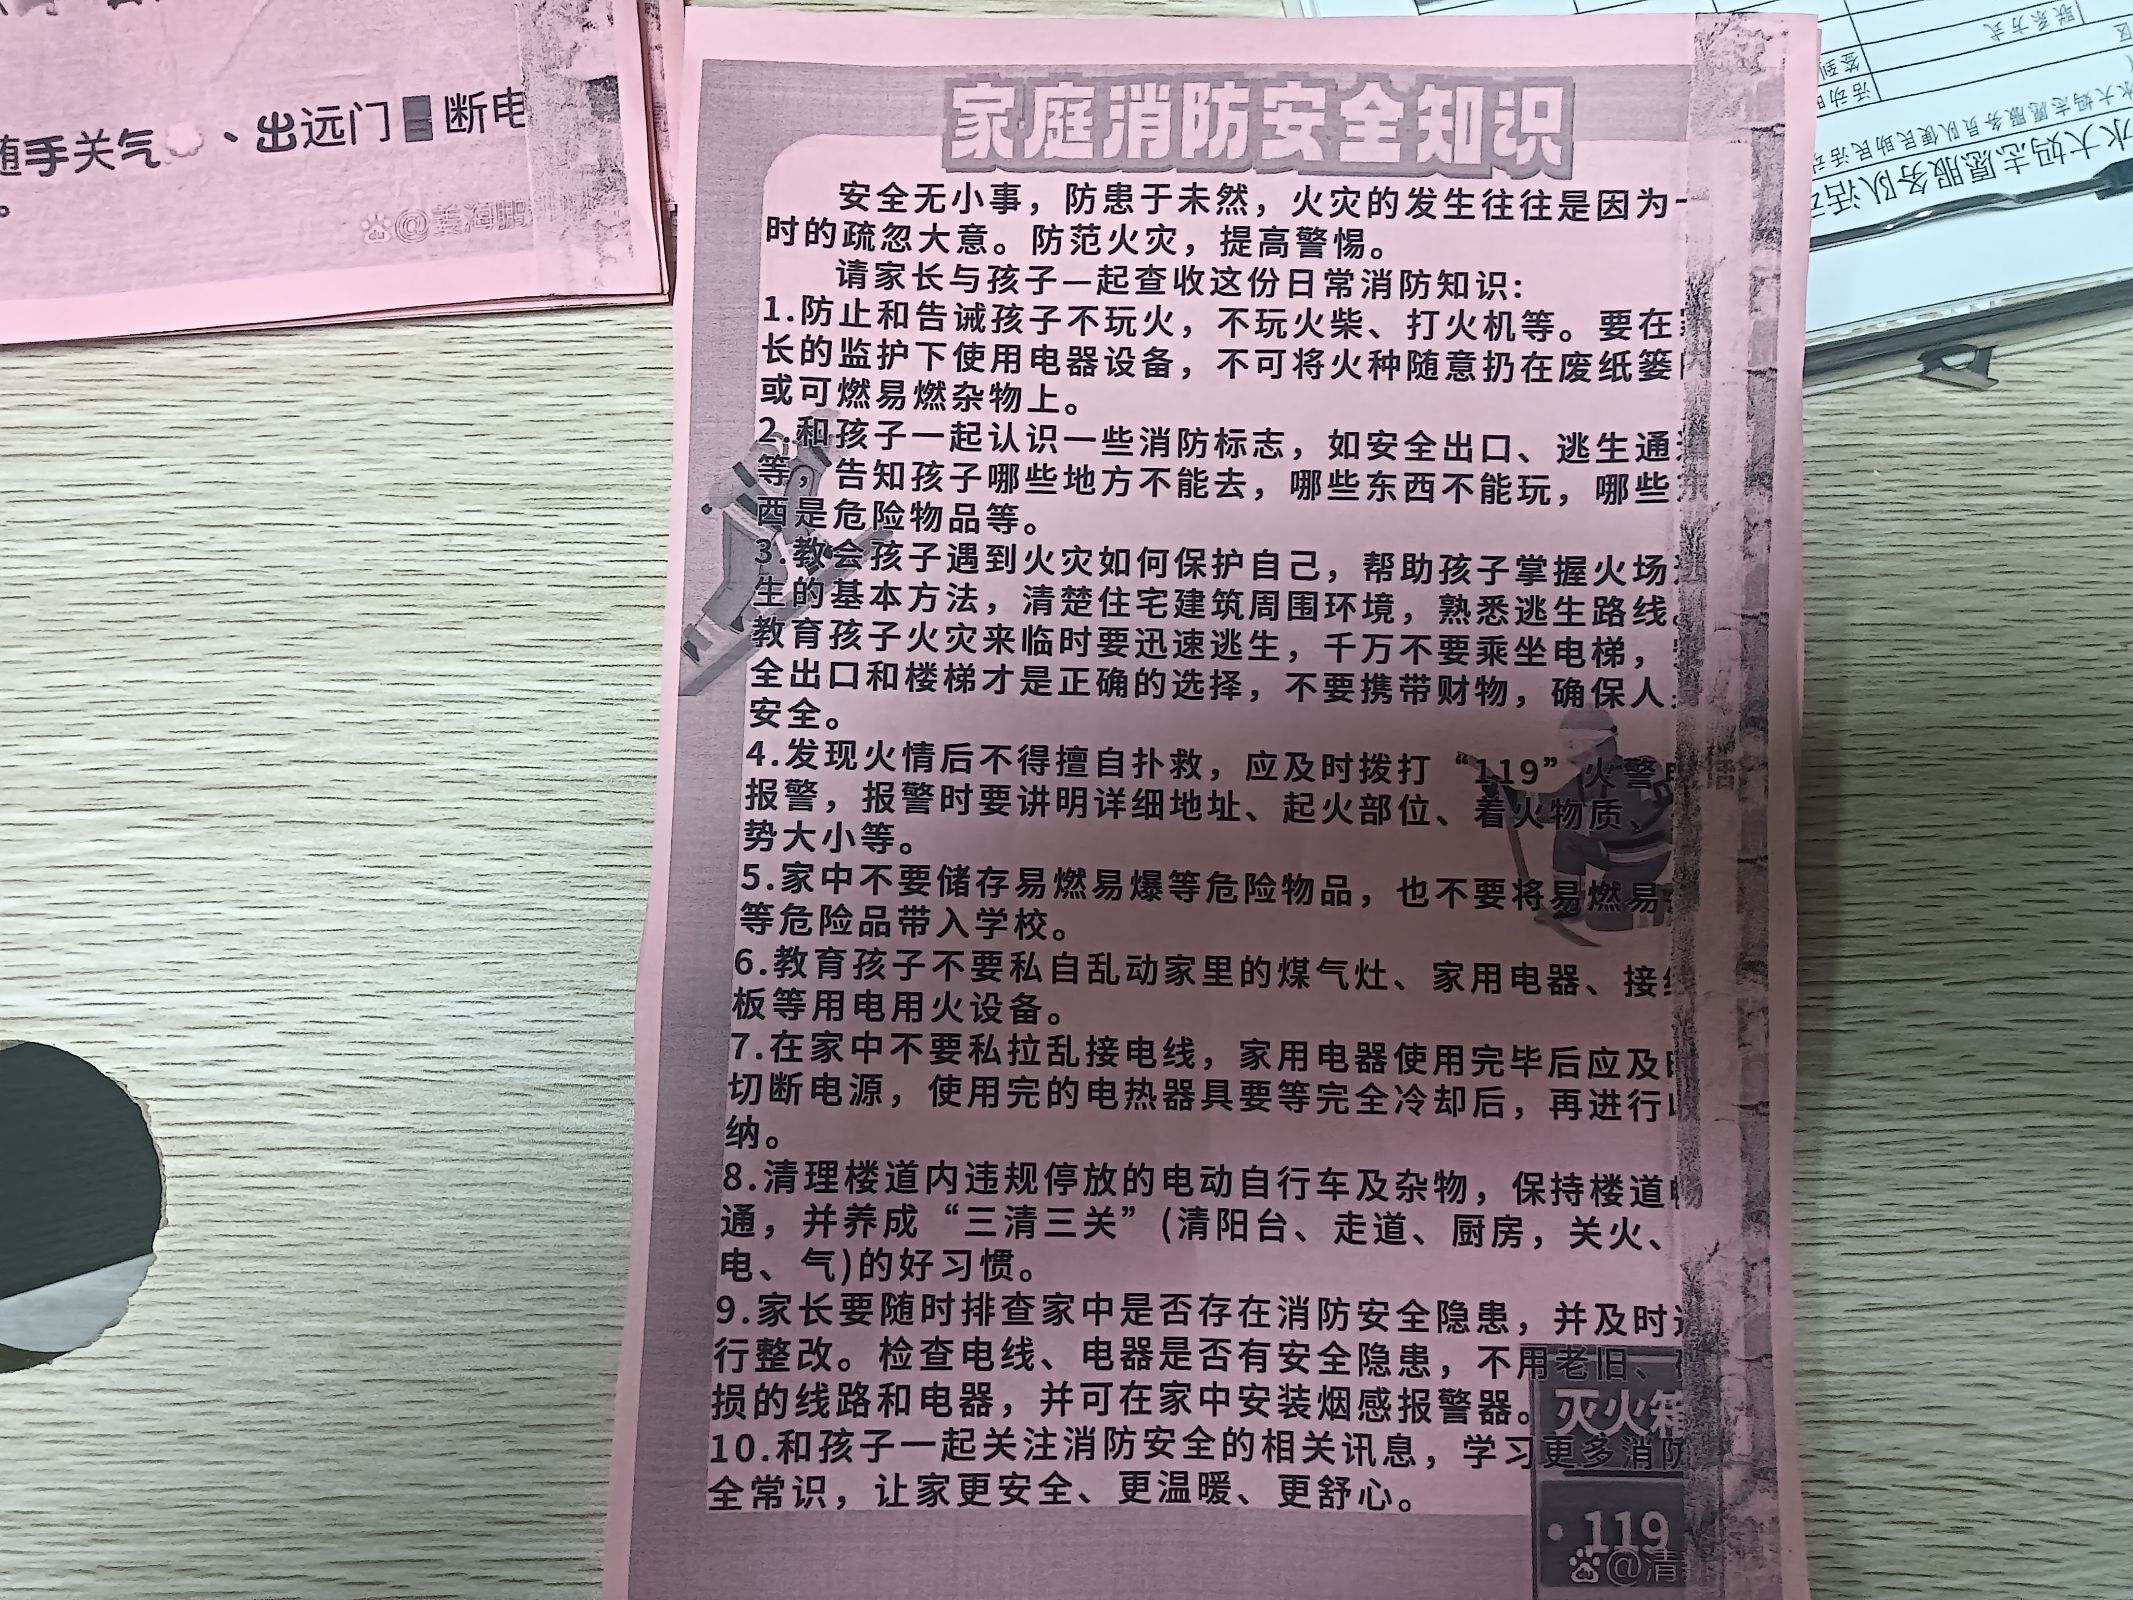 随手关气、出远门断电
。
家庭消防安全知识
安全无小事，防患于未然，火灾的发生往往是因为一
时的疏忽大意。防范火灾，提高警惕。
请家长与孩子一起查收这份日常消防知识:
1.防止和告诫孩子不玩火，不玩火柴、打火机等。要在
长的监护下使用电器设备，不可将火种随意扔在废纸篓
或可燃易燃杂物上。
2.和孩子一起认识一些消防标志，如安全出口、逃生通
等，告知孩子哪些地方不能去，哪些东西不能玩，哪些
西是危险物品等。
3.教会孩子遇到火灾如何保护自己，帮助孩子掌握火场
生的基本方法，清楚住宅建筑周围环境，熟悉逃生路线。
教育孩子火灾来临时要迅速逃生，千万不要乘坐电梯，
全出口和楼梯才是正确的选择，不要携带财物，确保人
安全。
4.发现火情后不得擅自扑救，应及时拨打“119”火警电话
报警，报警时要讲明详细地址、起火部位、着火物质、
势大小等。
5.家中不要储存易燃易爆等危险物品，也不要将易燃易
等危险品带入学校。
6.教育孩子不要私自乱动家里的煤气灶、家用电器、接
板等用电用火设备。
7.在家中不要私拉乱接电线，家用电器使用完毕后应及
切断电源，使用完的电热器具要等完全冷却后，再进行
纳。
8.清理楼道内违规停放的电动自行车及杂物，保持楼道
通，并养成“三清三关”(清阳台、走道、厨房，关火、
电、气)的好习惯。
9.家长要随时排查家中是否存在消防安全隐患，并及时
行整改。检查电线、电器是否有安全隐患，不用老旧、
损的线路和电器，并可在家中安装烟感报警器。
灭火箱
10.和孩子一起关注消防安全的相关讯息，学习更多消防
全常识，让家更安全、更温暖、更舒心。
119
@清
@姜海鹏
水大妈志愿服务队活动
水大妈志愿服务队便民助民活动
签到
联系方式